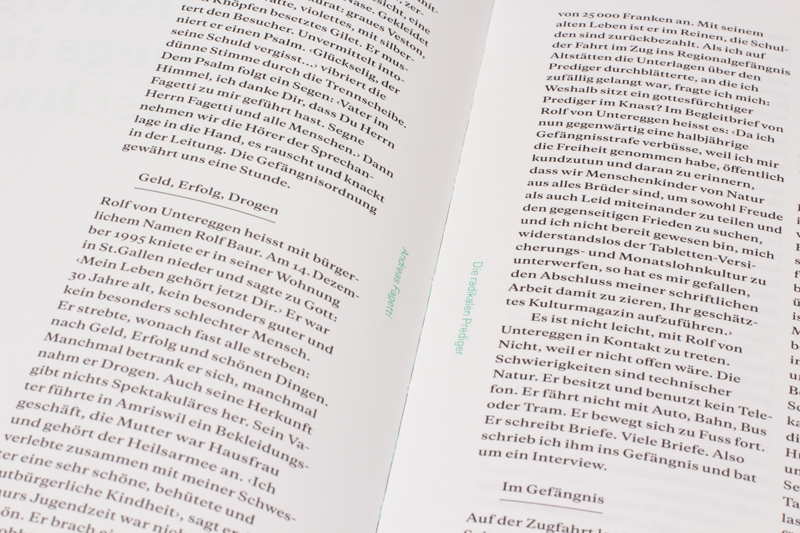 Knöpfen besetztes Gilet. Er mus-
tert den Besucher. Unvermittelt into-
niert er einen Psalm. ‹Glückselig, der
seine Schuld vergisst…› vibriert die
dünne Stimme durch die Trennscheibe.
Dem Psalm folgt ein Segen: ‹Vater im
Himmel, ich danke Dir, dass Du Herrn
Fagetti zu mir geführt hast. Segne
Herrn Fagetti und alle Menschen.› Dann
nehmen wir die Hörer der Sprechan-
lage in die Hand, es rauscht und knackt
in der Leitung. Die Gefängnisordnung
gewährt uns eine Stunde.
Geld, Erfolg, Drogen
Rolf von Untereggen heisst mit bürger-
lichem Namen Rolf Baur. Am 14. Dezem-
ber 1995 kniete er in seiner Wohnung
in St.Gallen nieder und sagte zu Gott:
‹Mein Leben gehört jetzt Dir.› Er war
30 Jahre alt, kein besonders guter und
kein besonders schlechter Mensch.
Er strebte, wonach fast alle streben:
nach Geld, Erfolg und schönen Dingen.
Manchmal betrank er sich, manchmal
nahm er Drogen. Auch seine Herkunft
gibt nichts Spektakuläres her. Sein Va-
ter führte in Amriswil ein Bekleidungs-
geschäft, die Mutter war Hausfrau
und gehört der Heilsarmee an. ‹Ich
verlebte zusammen mit meiner Schwes-
ter eine sehr schöne, behütete und
gutbürgerliche Kindheit›, sagt er
Jugendzeit war nich
Er brach e
Andreas Fagetti
Die radikalen Prediger
von 25 000 Franken an. Mit seinem
alten Leben ist er im Reinen, die Schul-
den sind zurückbezahlt. Als ich auf
der Fahrt im Zug ins Regionalgefängnis
Altstätten die Unterlagen über den
Prediger durchblätterte, an die ich
zufällig gelangt war, fragte ich mich:
Weshalb sitzt ein gottesfürchtiger
Prediger im Knast? Im Begleitbrief von
Rolf von Untereggen heisst es: ‹Da ich
nun gegenwärtig eine halbjährige
Gefängnisstrafe verbüsse, weil ich mir
die Freiheit genommen habe, öffentlich
kundzutun und daran zu erinnern,
dass wir Menschenkinder von Natur
aus alles Brüder sind, um sowohl Freude
als auch Leid miteinander zu teilen und
den gegenseitigen Frieden zu suchen,
und ich nicht bereit gewesen bin, mich
widerstandslos der Tabletten-Versi-
cherungs- und Monatslohnkultur zu
unterwerfen, so hat es mir gefallen,
den Abschluss meiner schriftlichen
Arbeit damit zu zieren, Ihr geschätz-
tes Kulturmagazin aufzuführen.›
Es ist nicht leicht, mit Rolf von
Untereggen in Kontakt zu treten.
Nicht, weil er nicht offen wäre. Die
Schwierigkeiten sind technischer
Natur. Er besitzt und benutzt kein Tele-
fon. Er fährt nicht mit Auto, Bahn, Bus
oder Tram. Er bewegt sich zu Fuss fort.
Er schreibt Briefe. Viele Briefe. Also
schrieb ich ihm ins Gefängnis und bat
um ein Interview.
Im Gefängnis
Auf der Zugfahrt